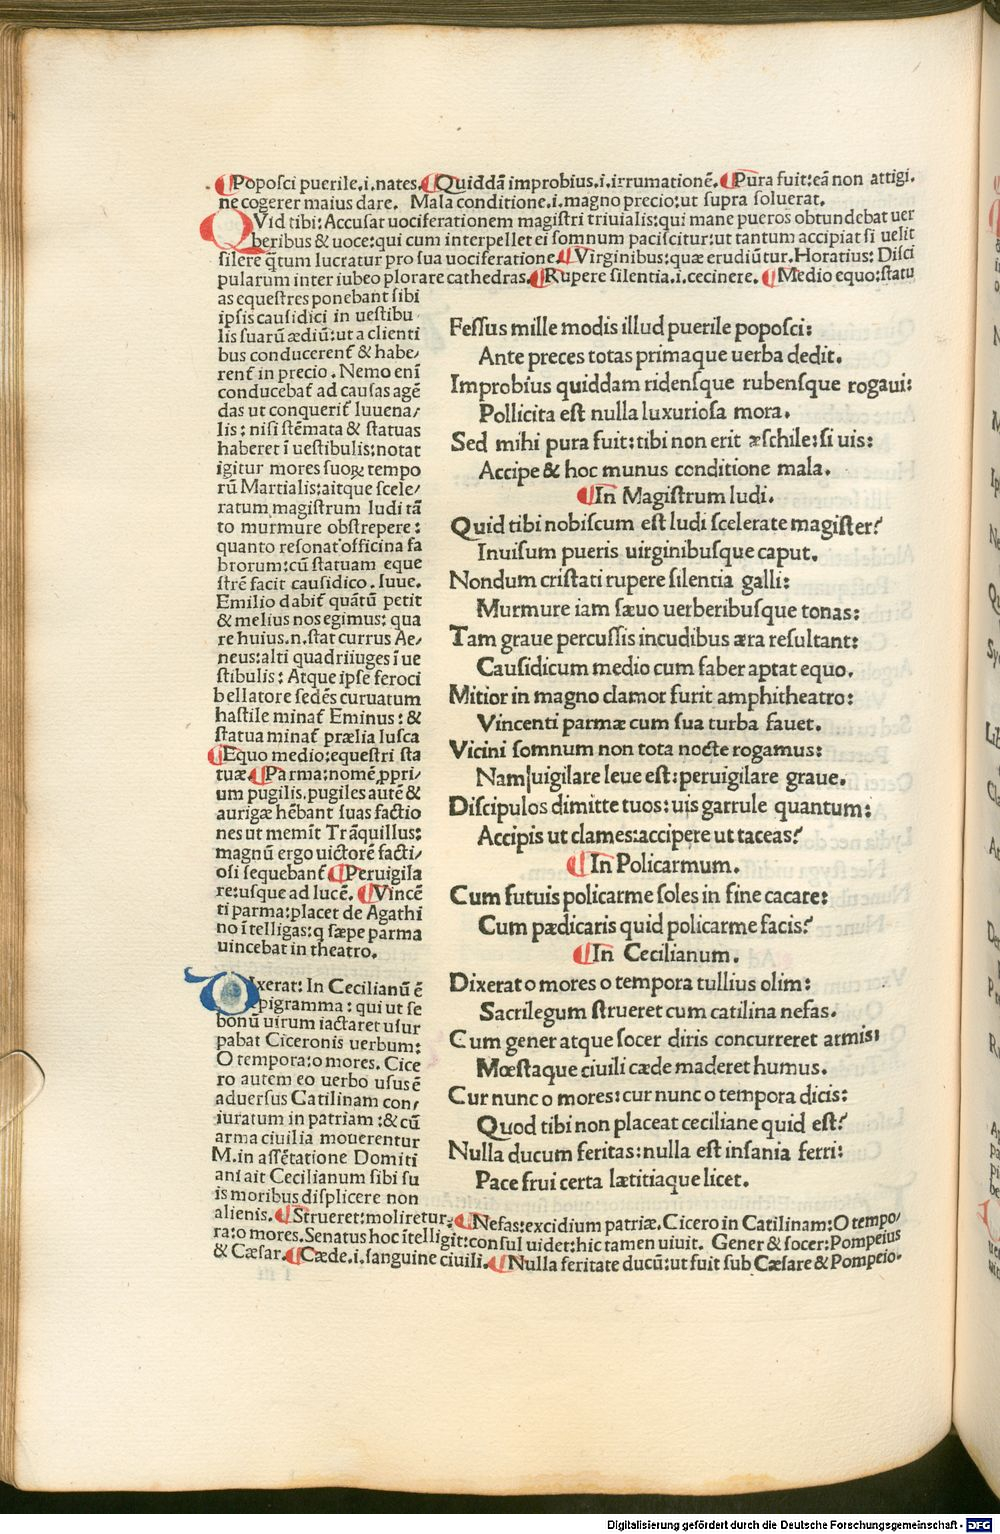 ¶Popoſci puerile.i.nates.¶Quiddā improbius.i.irrumationē.¶Pura fuit:eā non attigi.
ne cogerer maius dare. Mala conditione.i.magno precio:ut ſupra ſoluerat.
QVid tibi: Accuſat uociferationem magiſtri triuialis:qui mane pueros obtundebat uer
beribus & uoce:qui cum interpellet ei ſomnum paciſcitur:ut tantum accipiat ſi uelit
ſilere q̄tum lucratur pro ſua uociferatione.¶Virginibus:quæ erudiūtur. Horatius: Diſci
pularum inter iubeo plorare cathedras.¶Rupere ſilentia.i.cecinere. ¶Medio equo:ſtatu
as equeſtres ponebant ſibi
ipſis cauſidici in ueſtibu⸗
lis ſuarū ædiū:ut a clienti
bus conducerent̄ & habe⸗
rent̄ in precio. Nemo enī
conducebat̄ ad cauſas agē
das ut conquerit̄ Iuuena⸗
lis: niſi ſtēmata & ſtatuas
haberet ī ueſtibulis:notat
igitur mores ſuoꝝ tempo
rū Martialis:aitque ſcele⸗
ratum magiſtrum ludi tā
to murmure obſtrepere:
quanto reſonat officina fa
brorum:cū ſtatuam eque
ſtrē facit cauſidico. Iuue.
Emilio dabit̄ quātū petit
& melius nos egimus: qua
re huius.n.ſtat currus Ae⸗
neus:alti quadriiuges ī ue
ſtibulis: Atque ipſe feroci
bellatore ſedēs curuatum
haſtile minat̄ Eminus: &
ſtatua minat̄ prælia luſca
¶Equo medio:equeſtri ſta
tuæ.¶Parma:nomē ꝓpri⸗
um pugilis.pugiles autē &
aurigæ hēbant ſuas factio
nes ut memīt Trāquillus:
magnū ergo uictorē facti⸗
oſi ſequebant̄.¶Peruigila
re:uſque ad lucē. ¶Vincē
ti parma:placet de Agathi
no ītelligas:q ſæpe parma
uincebat in theatro.
DIxerat: In Cecilianū ē
pigramma: qui ut ſe
bonū uirum iactaret uſur
pabat Ciceronis uerbum:
O tempora:o mores. Cice
ro autem eo uerbo uſus ē
aduerſus Catilinam con⸗
iuratum in patriam:& cū
arma ciuilia mouerentur
M.in aſſētatione Domiti
ani ait Cecilianum ſibi ſu
is moribus diſplicere non
alienis.¶Strueret:moliretur.¶Nefas:excidium patriæ.Cicero in Catilinam:O tempo⸗
ra:o mores.Senatus hoc ītelligit:conſul uidet:hic tamen uiuit. Gener & ſocer:Pompeius
& Cæſar.¶Cæde.i.ſanguine ciuili.¶Nulla feritate ducū:ut fuit ſub Cæſare & Pompeio.
Feſſus mille modis illud puerile popoſci:
Ante preces totas primaque uerba dedit.
Improbius quiddam ridenſque rubenſque rogaui:
Pollicita eſt nulla luxurioſa mora.
Sed mihi pura fuit:tibi non erit æſchile:ſi uis:
Accipe & hoc munus conditione mala.
¶In Magiſtrum ludi.
Quid tibi nobiſcum eſt ludi ſcelerate magiſter?
Inuiſum pueris uirginibuſque caput.
Nondum criſtati rupere ſilentia galli:
Murmure iam ſæuo uerberibuſque tonas:
Tam graue percuſſis incudibus æra reſultant:
Cauſidicum medio cum faber aptat equo.
Mitior in magno clamor furit amphitheatro:
Vincenti parmæ cum ſua turba fauet.
Vicini ſomnum non tota nocte rogamus:
Nam uigilare leue eſt:peruigilare graue.
Diſcipulos dimitte tuos: uis garrule quantum:
Accipis ut clames:accipere ut taceas?
¶In Policarmum.
Cum futuis policarme ſoles in fine cacare:
Cum pædicaris quid policarme facis?
¶In Cecilianum.
Dixerat o mores o tempora tullius olim:
Sacrilegum ſtrueret cum catilina nefas.
Cum gener atque ſocer diris concurreret armis:
Mœſtaque ciuili cæde maderet humus.
Cur nunc o mores:cur nunc o tempora dicis:
Quod tibi non placeat ceciliane quid eſt?
Nulla ducum feritas:nulla eſt inſania ferri:
Pace frui certa lætitiaque licet.
Digitalisierung gefördert durch die Deutsche Forschungsgemeinschaft - DFG